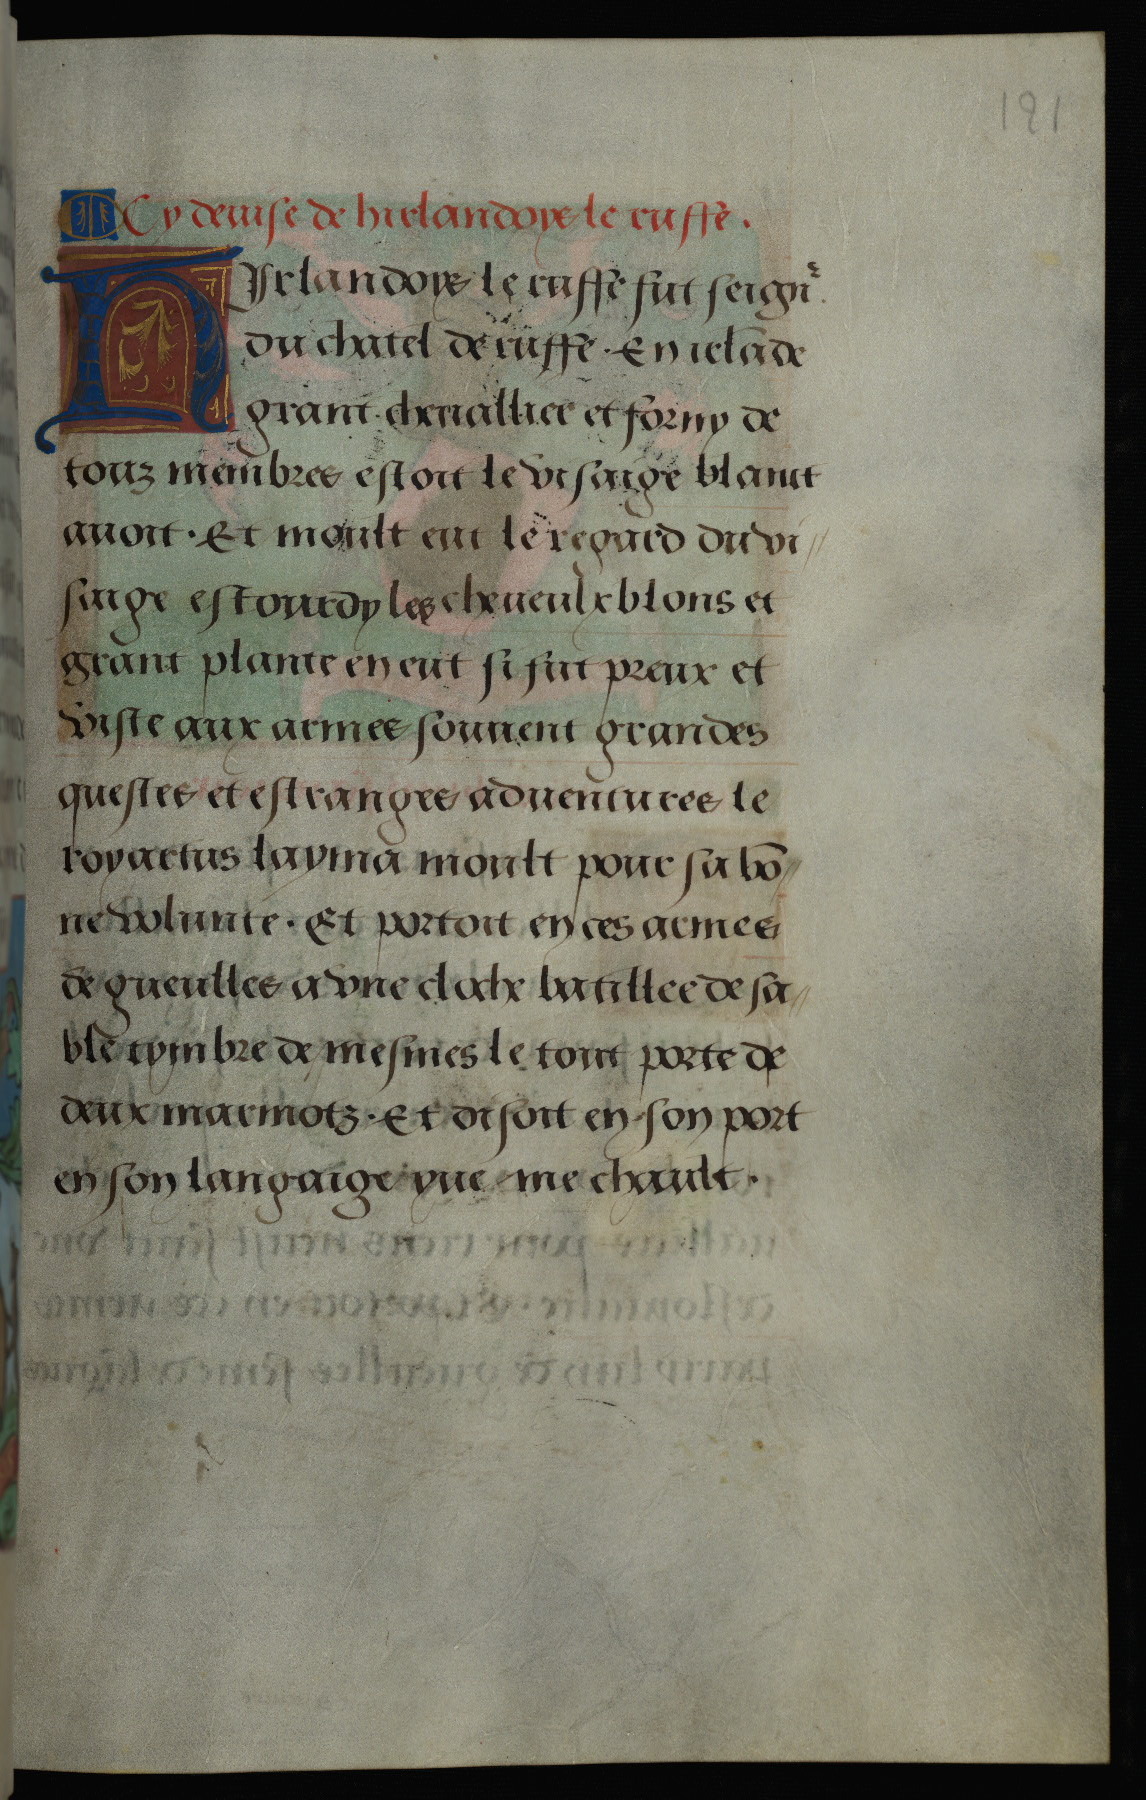 121
Cy deuise de hirlandoys le ruffe.
HIrlandoys le ruffe fut seignr̃.
du chatel de ruffe. En irlãde
grant cheuallier et forny de
touz membres estoit le visaige blanct
auoit. Et moult eut le regard du vi//
saige estourdy les cheueulx blons et
grant plante en eut si fut preux et
viste aux armes souuent grandes
questes et estranges aduentures le
roy artus layma moult pour sa bõ//
ne volunte. Et portoit en ces armes
de gueulles a vne cloche batillee de sa//
ble tymbre de mesmes le tout porte de
deux marmotz. Et disoit en son port
en son langaige que me chault.